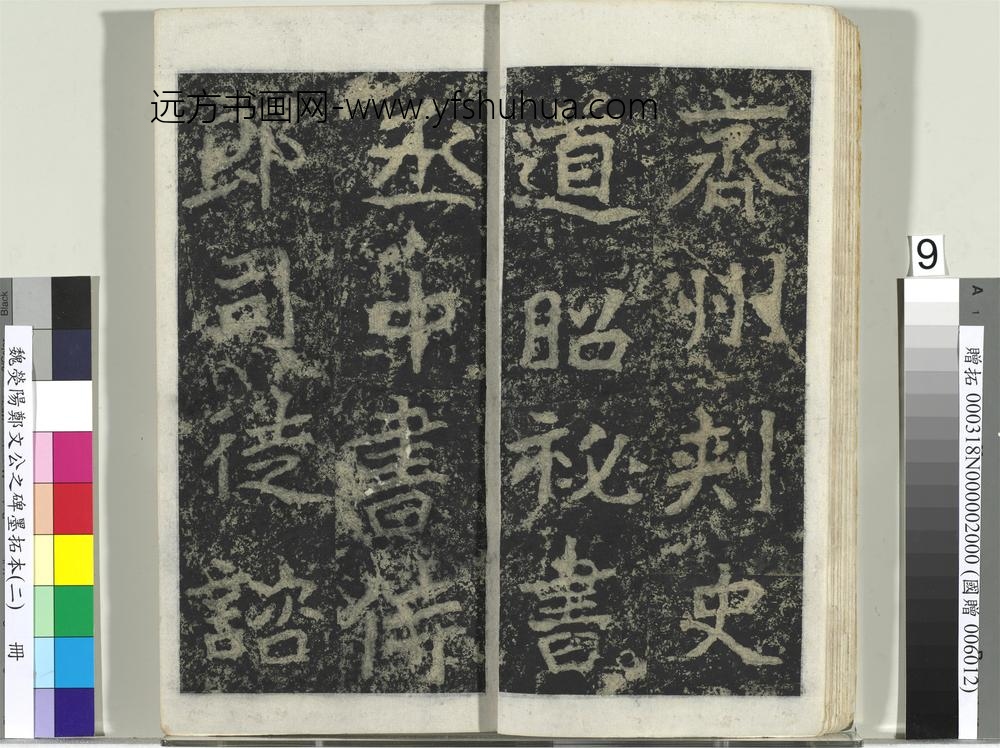 远方书画网-www.yfshuhua.com
齊州刾史
道昭祕書
丞中書侍
郎司徒諮
9
魏滎陽鄭文公之碑墨拓本(二) 冊
贈拓 000318N000002000 (國贈 006012)
Black
A
1